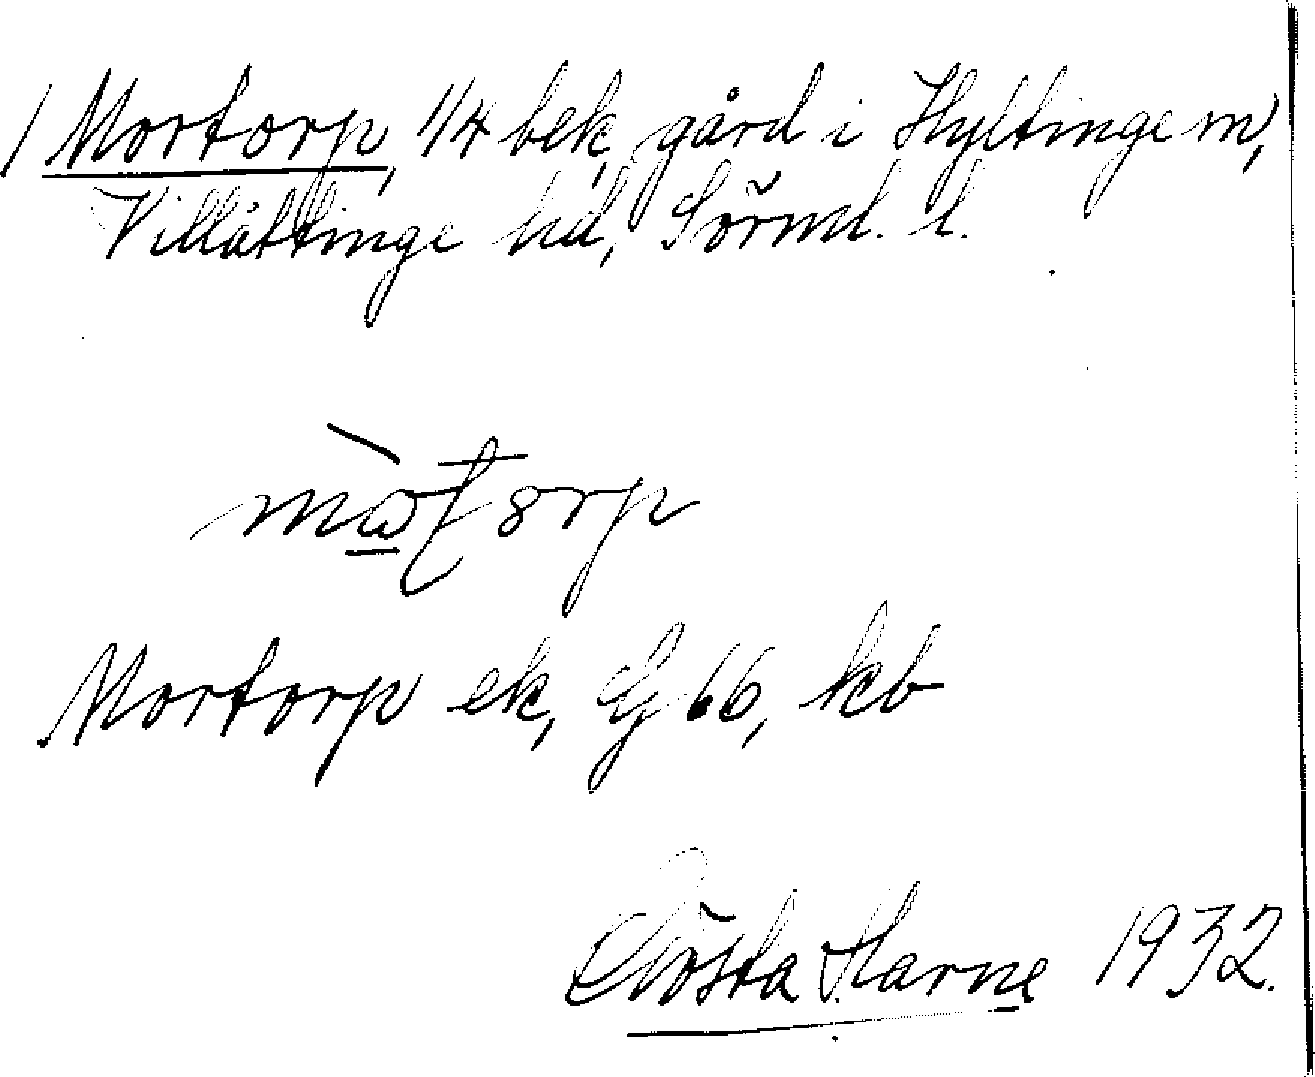 / Mortorp, 1/4 bek, gård i Hyltinge sn,
Villåttinge hd, Sörml. l.
Mortorp ek, G 66, kb
Gösta Harne 1932.